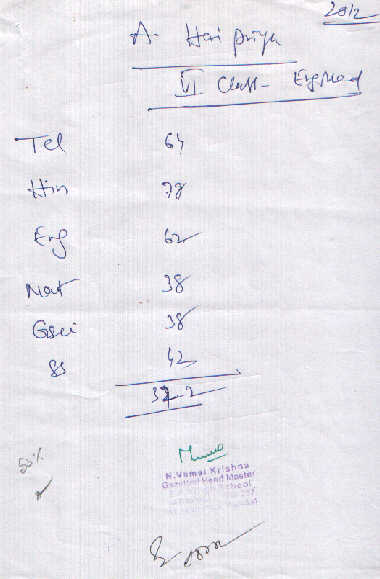 2012
A. Hari priya
VI Class - Eng Med
Tel 64
Hin 78
Eng 62
Mat 38
G.sci 38
SS 42
322
50%
N. Vamsi Krishna
Gazetted Head Master
School